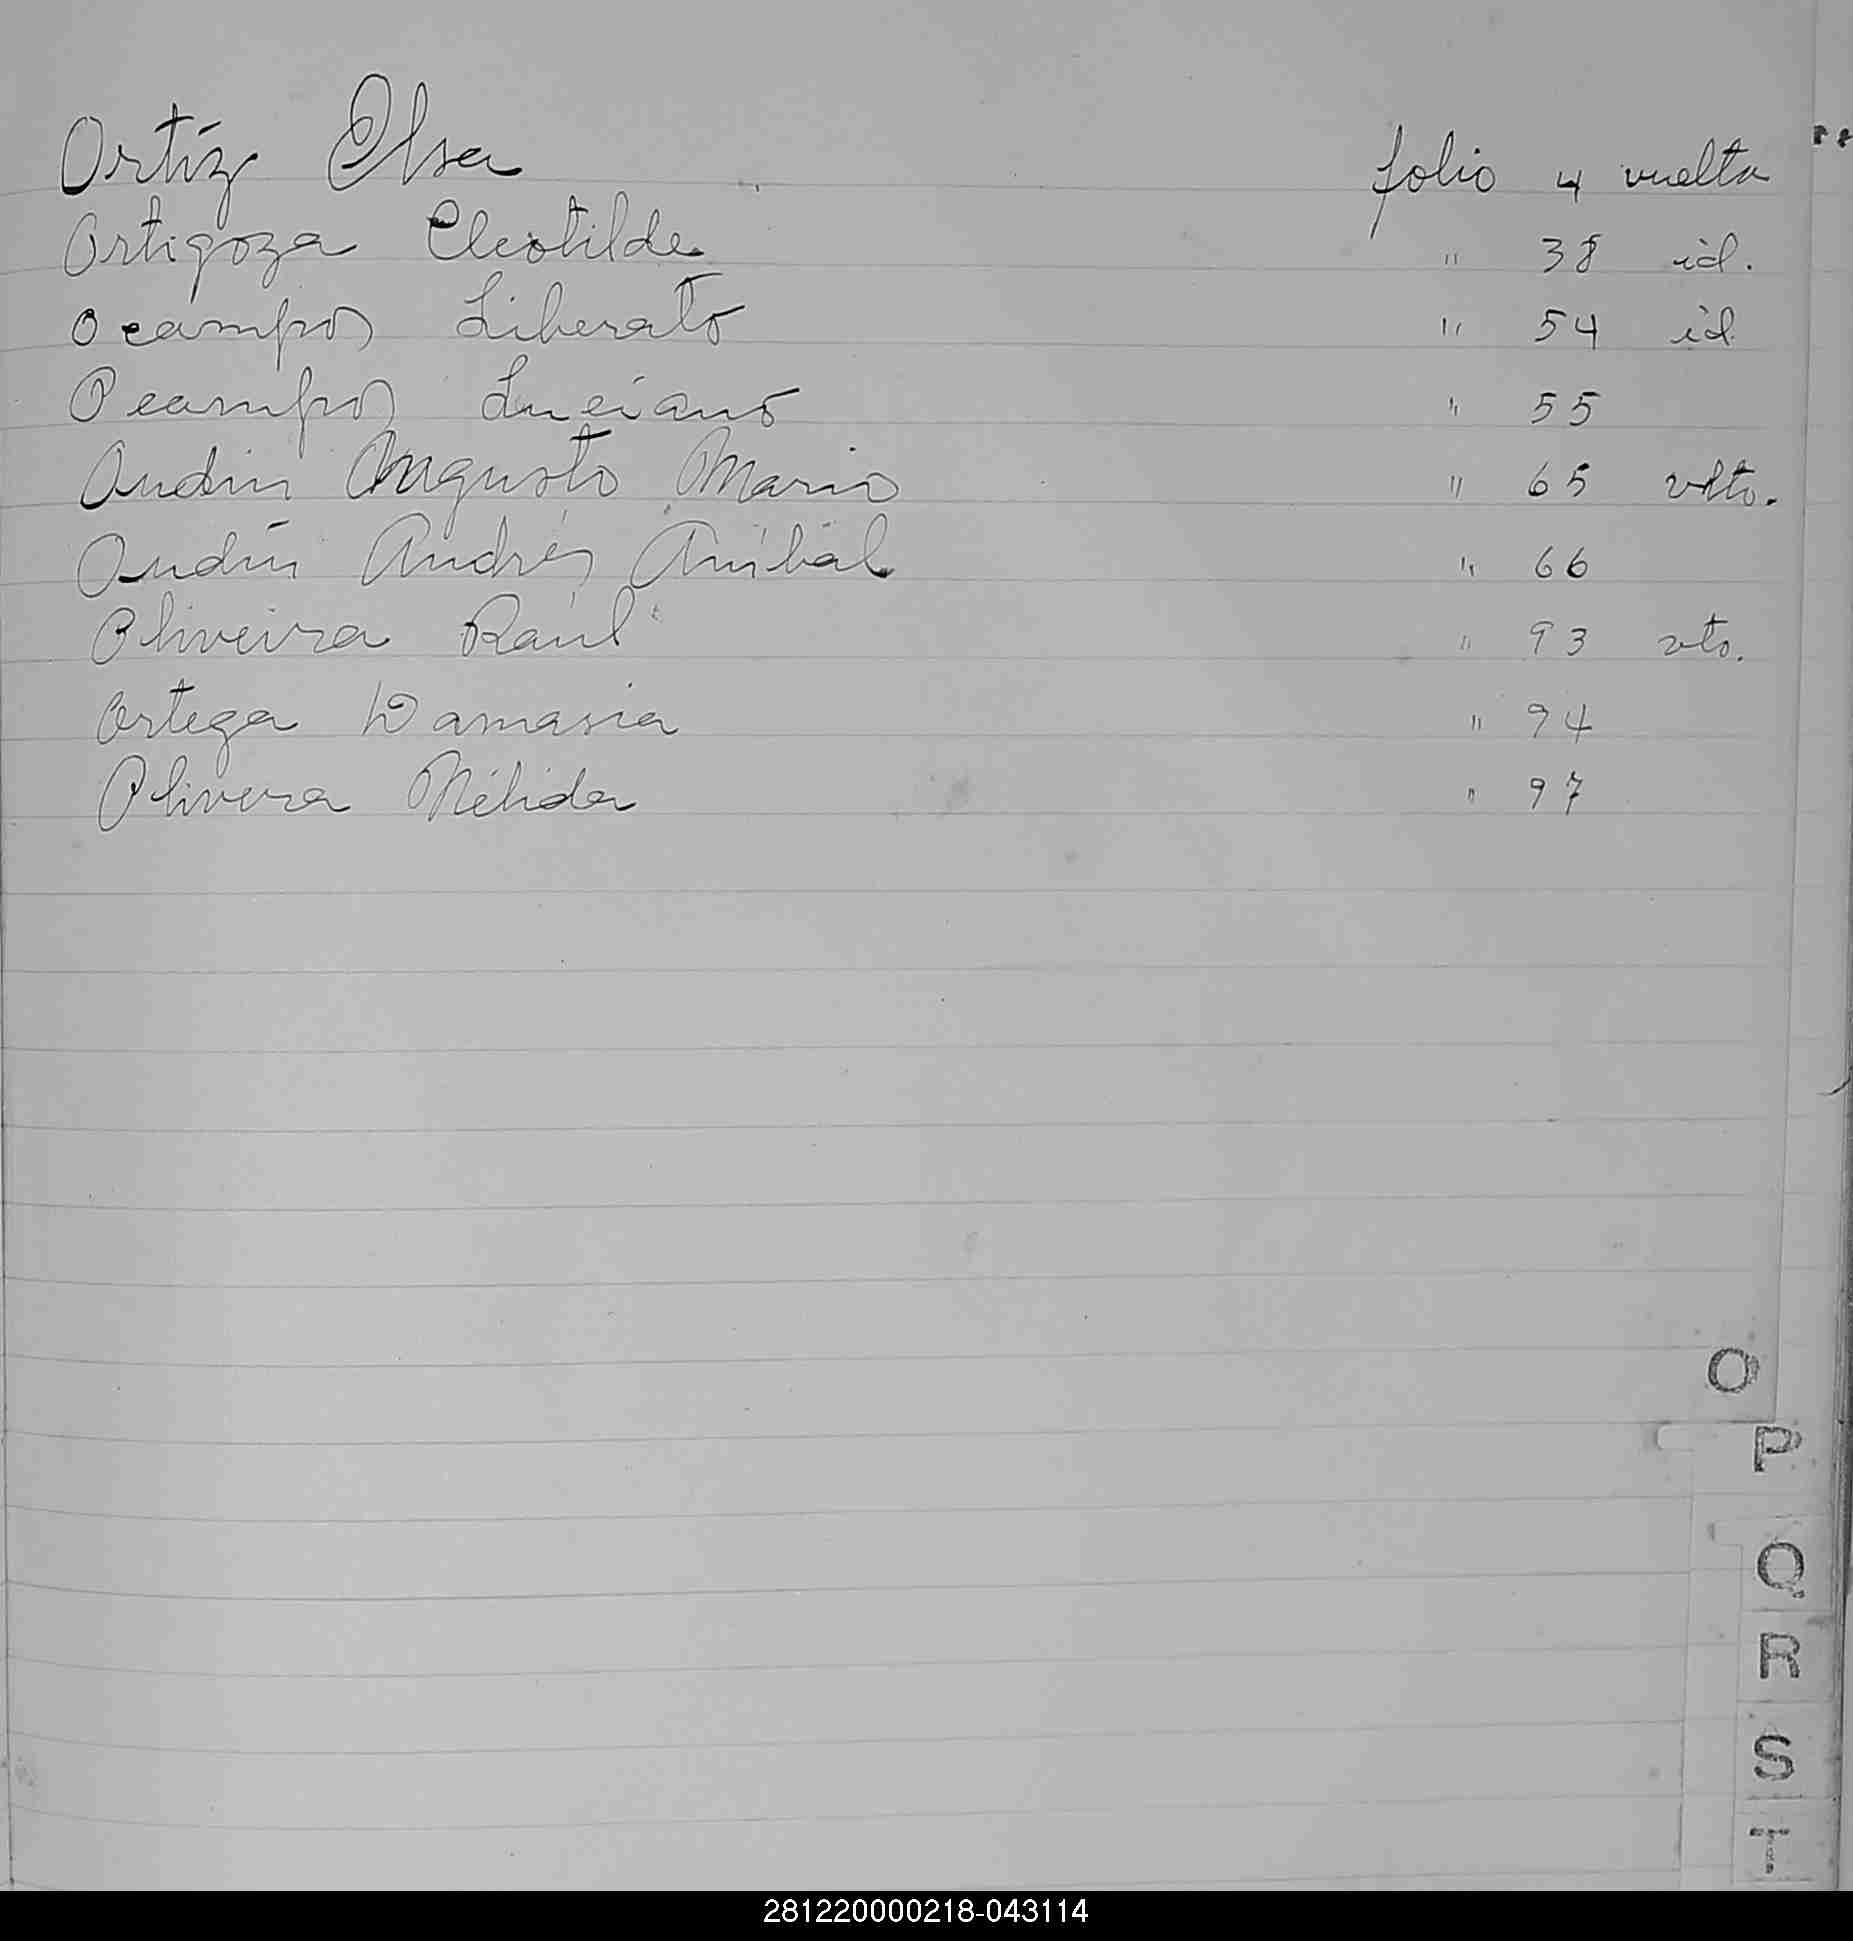 Ortíz Elsa folio 4 vuelta
Ortigoza Cleotilde " 38 id.
Ocampos Liberato " 54 id
Ocampos Luciano " 55
Oudin Augusto Mario " 65 vlto.
Oudín Andrés Aníbal " 66
Oliveira Raúl " 93 vto.
Ortega Damasia " 94
Olivera Nélida " 97
O
P
Q
R
S
T
281220000218-043114